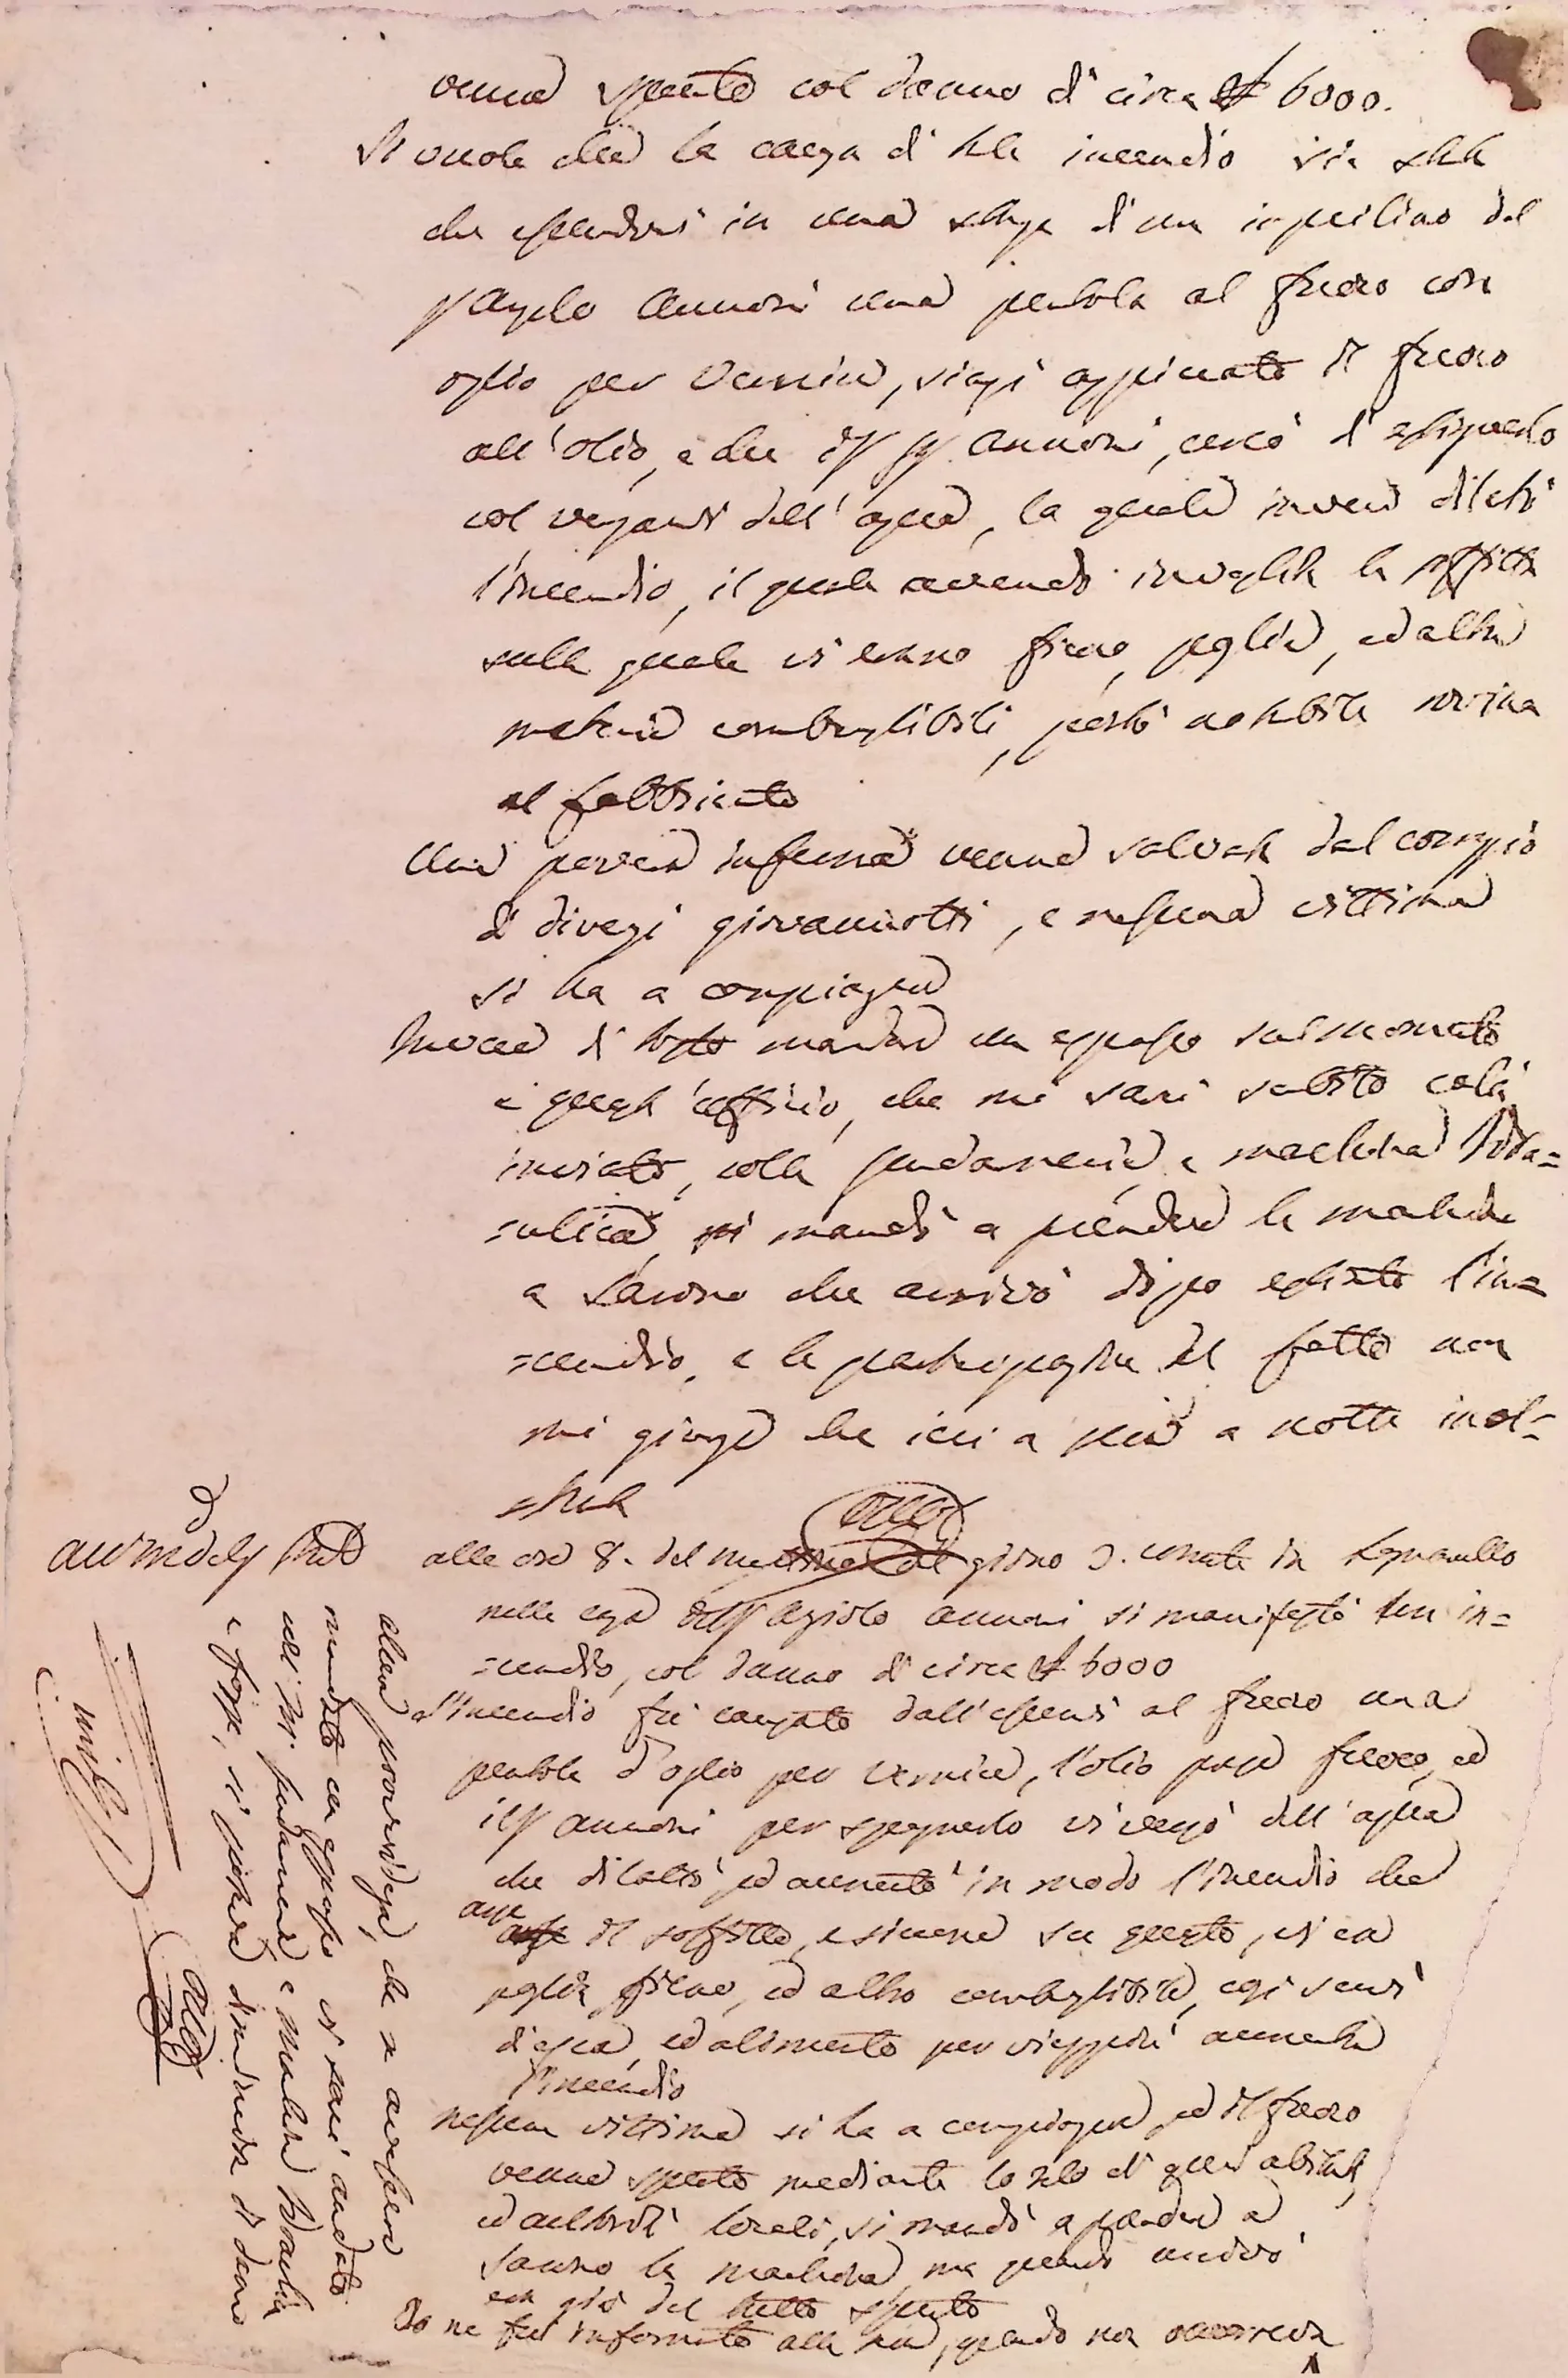 venne spento col danno di circa £ 6000.
Si vuole che la causa di tale incendio sia stata
che essendovi in una stanza d'un inquilino del
Annoni una pentola al fuoco con
oglio per vernice, siasi appiccato il fuoco
all'olio, e che il Sig. Annoni, cercò d'estinguerlo
col versarvi dell'acqua, la quale invece dilatò
l'incendio, il quale avendo investita la soffitta
sulla quale vi erano fieno, paglia, ed altre
materie combustibili, portò notabile rovina
al fabbricato
Una povera inferma venne salvata dal coraggio
di diversi giovannotti, e nessuna vittima
si ha a compiangere
Invece di tosto mandare un espresso sul momento
a quest'ufficio, che mi sarei subito colà
inviato, colla gendarmeria, e machina Idra=
=ulica, si mandò a prendere la machina
a Saronno che arrivò dopo estinto l'in=
=cendio, e la partecipazione del fatto non
mi giunse che ieri a sera a notte inol=
=trata
alle ore 8. del giorno 3. corrente in
nelle case dell' Annoni si manifestò un in=
=cendio, col danno di circa £ 6000
L'incendio fu causato dall'esservi al fuoco una
pentola d'oglio per vernice, l'olio prese fuoco, ed
il Sig. Annoni per spegnerlo vi versò dell'acqua
che dilatò ed aumentò in modo l'incendio che
arse il soffitto, e siccome su questo, vi era
paglia, fieno, ed altro combustibile, così servì
d'esca, ed alimento per vieppiù aumentare
l'incendio
nessuna vittima si ha a compiangere, ed il fuoco
venne spento mediante lo zelo di quei abitanti,
ed autorità locali, si mandò a prendere a
Saronno la machina, ma quando arrivò
era già del tutto spento
Io ne fui informato alla sera, quando non occorreva
alcuna providenza, che se avessero
mandato un espresso vi sarei andato
colla gendarmeria e machina Idraulica
e forse, si poteva diminuire il danno